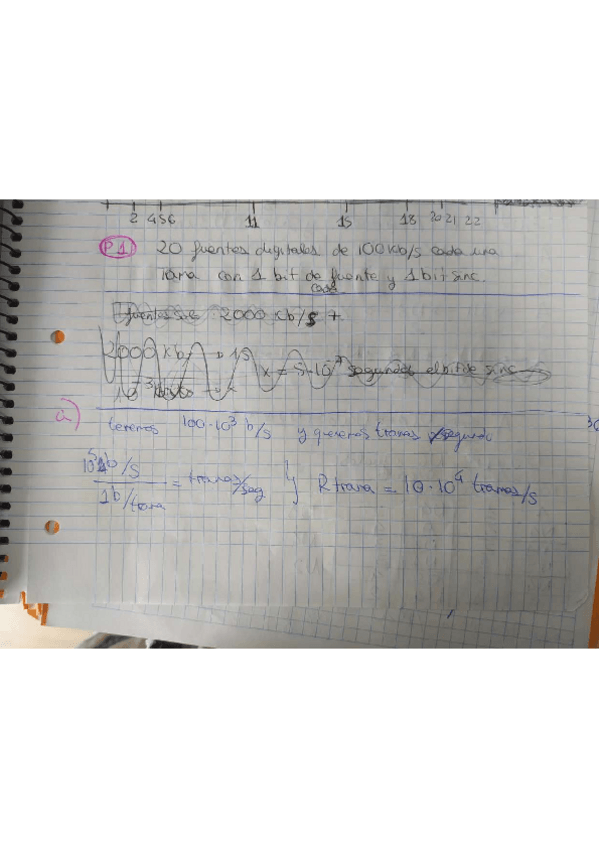 2 4 5 6 11 15 18 20 21 22
P.1 20 fuentes digitales de 100 Kb/s cada una
Trama con 1 bit de cada fuente y 1 bit sinc.
2000 Kb/s +
2000 Kb 1s x = 5·10⁻⁷ segundos el bit de sinc
a) tenemos 100·10³ b/s y queremos tramas /segundo
10⁵ b/s / 1b/trama = tramas/seg R trama = 10·10⁴ tramas/s